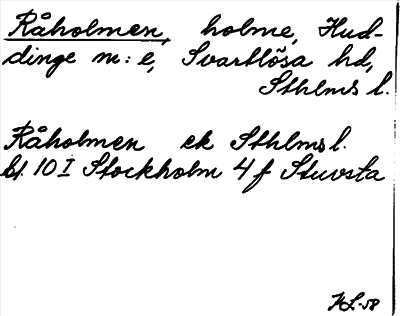 Råholmen, holme, Hud-
dinge m:e, Svartlösa hd,
Sthlms l.
Råholmen ek Sthlms l.
bl. 10 I Stockholm 4 f Stuvsta
HS-58